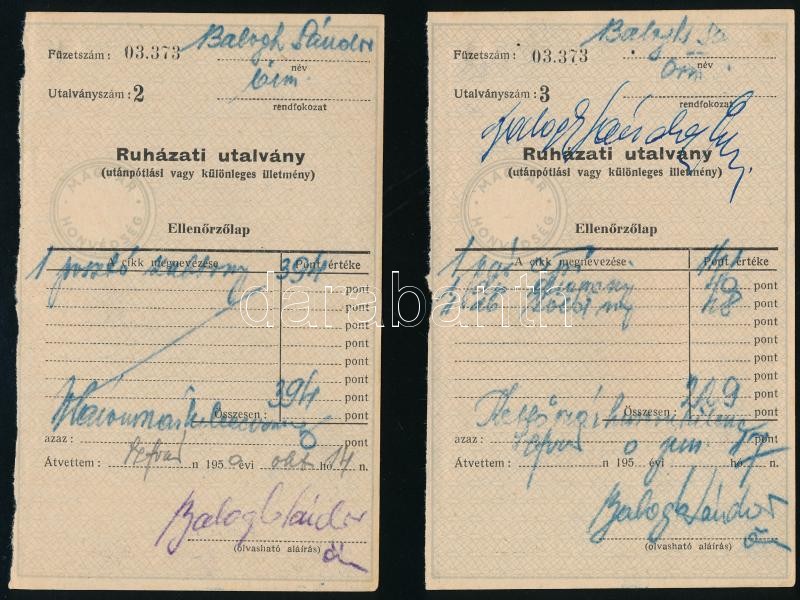 Füzetszám: 03.373
Balogh Sándor
név
Utalványszám: 2
őrm.
rendfokozat
Ruházati utalvány
(utánpótlási vagy különleges illetmény)
MAGYAR HONVÉDSÉG
Ellenőrzőlap
A cikk megnevezése Pont értéke
1 posztó zubbony 394 pont
pont
pont
pont
pont
pont
Összesen: 394 pont
azaz: pont
Átvettem: 1950 évi okt hó 14 n.
Balogh Sándor
(olvasható aláírás)
Füzetszám: 03.373
Balogh
név
Utalványszám: 3
őrm
rendfokozat
Balogh Sándor
Ruházati utalvány
(utánpótlási vagy különleges illetmény)
MAGYAR HONVÉDSÉG
Ellenőrzőlap
A cikk megnevezése Pont értéke
1 pár
pont
pont
pont
pont
pont
pont
Összesen: 229 pont
azaz: pont
Átvettem: n 1950 évi hó 17 n.
Balogh Sándor
(olvasható aláírás)
darabanth